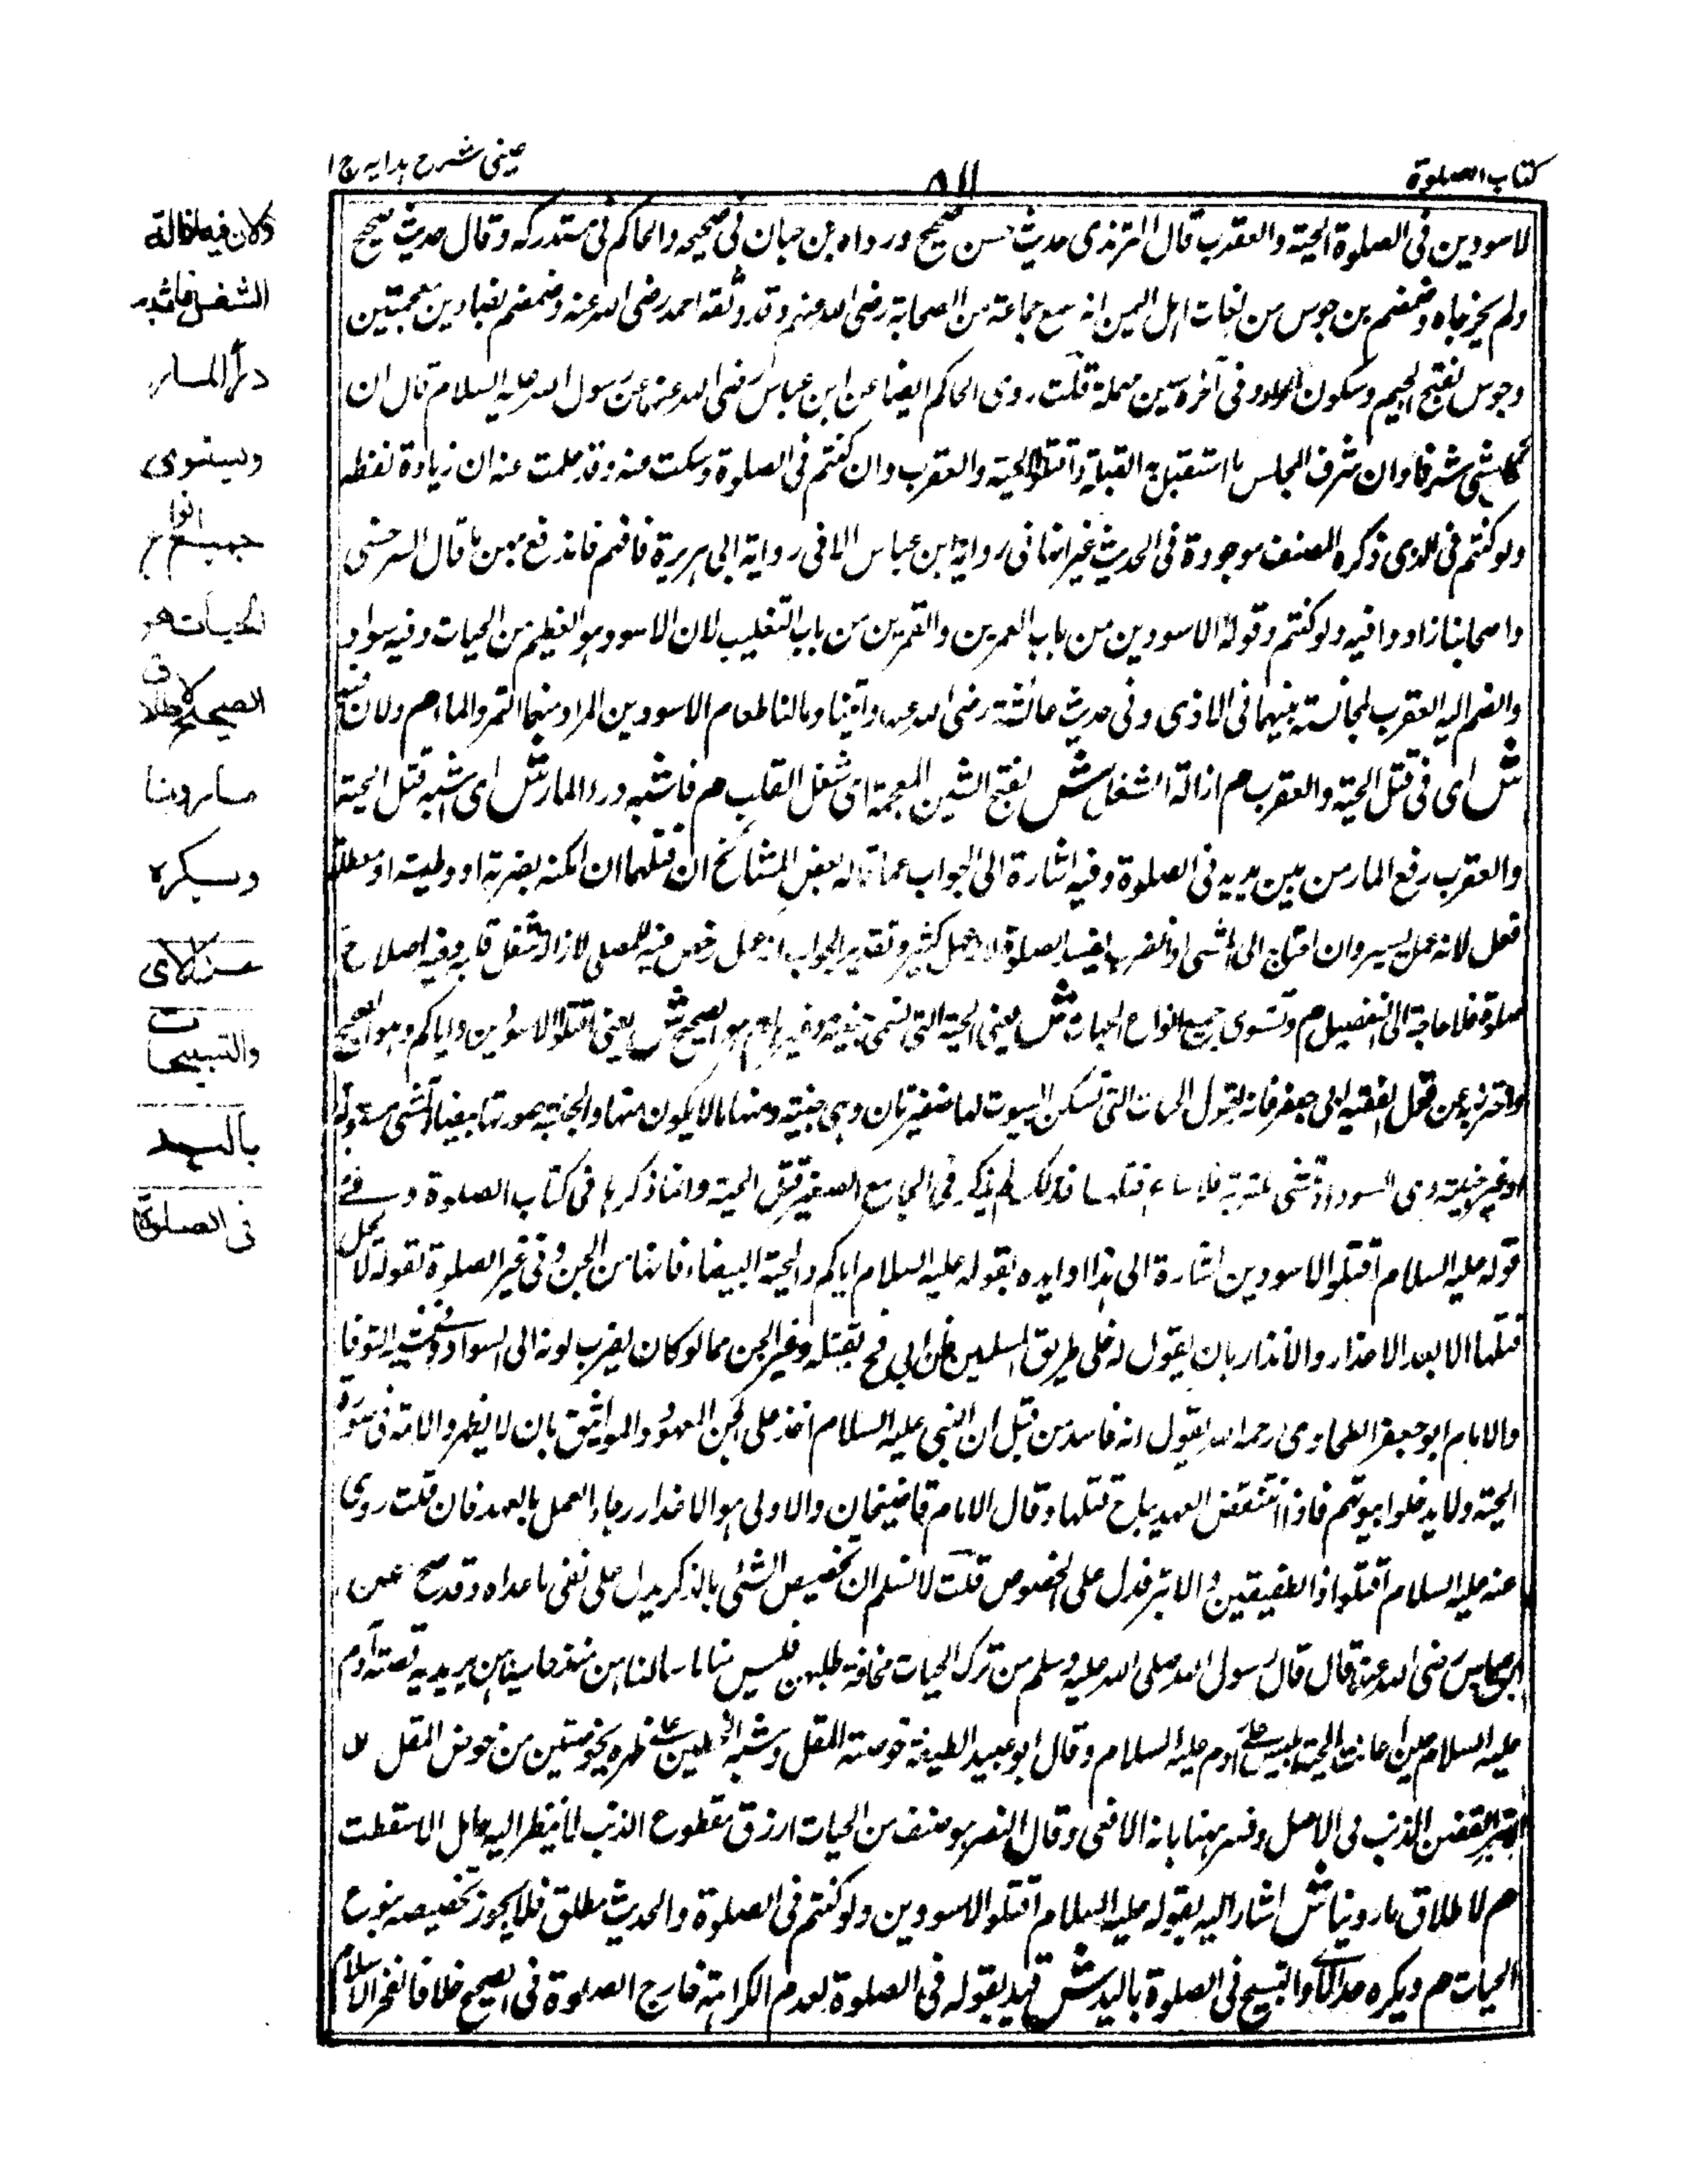 كتاب الصلوة
٨١١
عينى شرح هدايه ج ١
لاسودين فى الصلوة الحية والعقرب قال الترمذى حديث حسن صحيح ورواه بن حبان فى صحيحه والحاكم فى مستدركه وقال حديث صحيح
ولم يخرجاه وضمضم بن جوس من ثقات اهل اليمن انه سمع جماعة من الصحابة رضى الله عنهم وقد وثقه احمد رضى الله عنه وضمضم بضادين معجمتين
وجوس بفتح الجيم وسكون الواو وفى آخره سين مهملة قلت روى الحاكم ايضا عن ابن عباس رضى الله عنهما عن رسول الله عليه السلام قال ان
لكل شئى شرفا وان شرف المجالس ما استقبل به القبلة واقتلوا الحية والعقرب وان كنتم فى الصلوة وسكت عنه وقد علمت عنه ان زيادة لفظه
ولو كنتم فى الذى ذكره المصنف موجودة فى الحديث غير انها فى رواية ابن عباس لا فى رواية ابى هريرة فافهم فاندفع بهن ما قال السرخسى
واصحابنا زادوا فيه ولو كنتم وقوله الاسودين من باب العمرين والقمرين من باب التغليب لان الاسود هو العظيم من الحيات وفيه سواد
والضم اليه العقرب لمجانسة بينهما فى الاذى وفى حديث عائشة رضى الله عنها وآتينا ومالنا طعام الاسودين المراد منهما التمر والماء م ولان فيه
ش اى فى قتل الحية والعقرب م ازالة الشغل ش بفتح الشين المعجمة اى شغل القلب م فاشبه درء المار ش اى اشبه قتل الحية
والعقرب رفع المار من بين يديه فى الصلوة وفيه اشارة الى الجواب عما قاله بعض المشائخ ان قتلهما ان امكنه بضربة او وطيته او مطلقا
فعل لانه عمل يسير وان احتاج الى المشى او الضرب يفسد الصلوة لانه عمل كثير وتقدير الجواب انه عمل رخص فيه للمصلى لازالة شغل قلبه وفيه اصلاح
صلوة فلا حاجة الى التفصيل م وتستوى جميع انواع الحيات ش يعنى الحية التى تسمى جنية وغيرها م هو الصحيح ش يعنى اقتلوا الاسودين واياكم وهو الصحيح
واحترز به عن قول الفقيه ابى جعفر فانه يقول الحيات التى تسكن البيوت لها ضفيرتان وهى جنية ومنها ما لا يكون منها والجنية صورتها بيضاء تمشى مستوية
او غير جنية وهى السوداء تمشى ملتوية فلا باس بقتلها فلذلك لم يذكر فى الجامع الصغير قتل الحية وانما ذكرها فى كتاب الصلوة وفى
قوله عليه السلام اقتلوا الاسودين اشارة الى هذا وايده بقوله عليه السلام اياكم والحية البيضاء فانها من الجن وفى غير الصلوة تقوله لا يحل
قتلها الا بعد الاعذار والانذار بان يقول له خلى طريق المسلمين فان ابى فح يقتله وغير الجن مما لو كان يضرب لونه الى السواد وفى مشيه التوفا
والامام ابو جعفر الطحاوى رحمه الله يقول انه فاسد من قبل ان النبى عليه السلام اخذ على الجن العهود والمواثيق بان لا يظهروا لامته فى صورة
الحية ولا يدخلوا بيوتهم فاذا انتقض العهد يباح قتلها وقال الامام قاضيخان والاولى هو الاعذار رجاء العمل بالعهد فان قلت روى
عنه عليه السلام اقتلوا ذا الطفيتين والابتر فدل على الخصوص قلت لا نسلم ان تخصيص الشئى بالذكر يدل على نفى ما عداه وقد صح عن
ابن عباس رضى الله عنهما قال قال رسول الله صلى الله عليه وسلم من ترك الحيات مخافة طلبهن فليس منا ما سالمناهن منذ حاربناهن يريد به قصة آدم
عليه السلام حين اعانت الحية ابليس على آدم عليه السلام وقال ابو عبيد الطفية خوصة المقل وشبه الخطين على ظهره بخوصتين من خوص المقل
الابتر القصير الذنب فى الاصل وفسر ههنا بانه الافعى وقال النضر هو صنف من الحيات ازرق مقطوع الذنب لا ينظر اليه حامل الا سقطت
م لاطلاق ما روينا ش اشار اليه بقوله عليه السلام اقتلوا الاسودين ولو كنتم فى الصلوة والحديث مطلق فلا يجوز تخصيصه بنوع
الحيات م ويكره عد الآى والتسبيح فى الصلوة باليد ش قيد بقوله فى الصلوة لعدم الكراهة خارج الصلوة فى الصحيح خلافا لفخر الاسلام
ولان فيه ازالة
الشغل فاشبه
درأ المار
ويستوى
جميع انواع
الحيات هو
الصحيح لاطلاق
ما روينا
ويكره
عد الآى
والتسبيحات
باليد
فى الصلوة